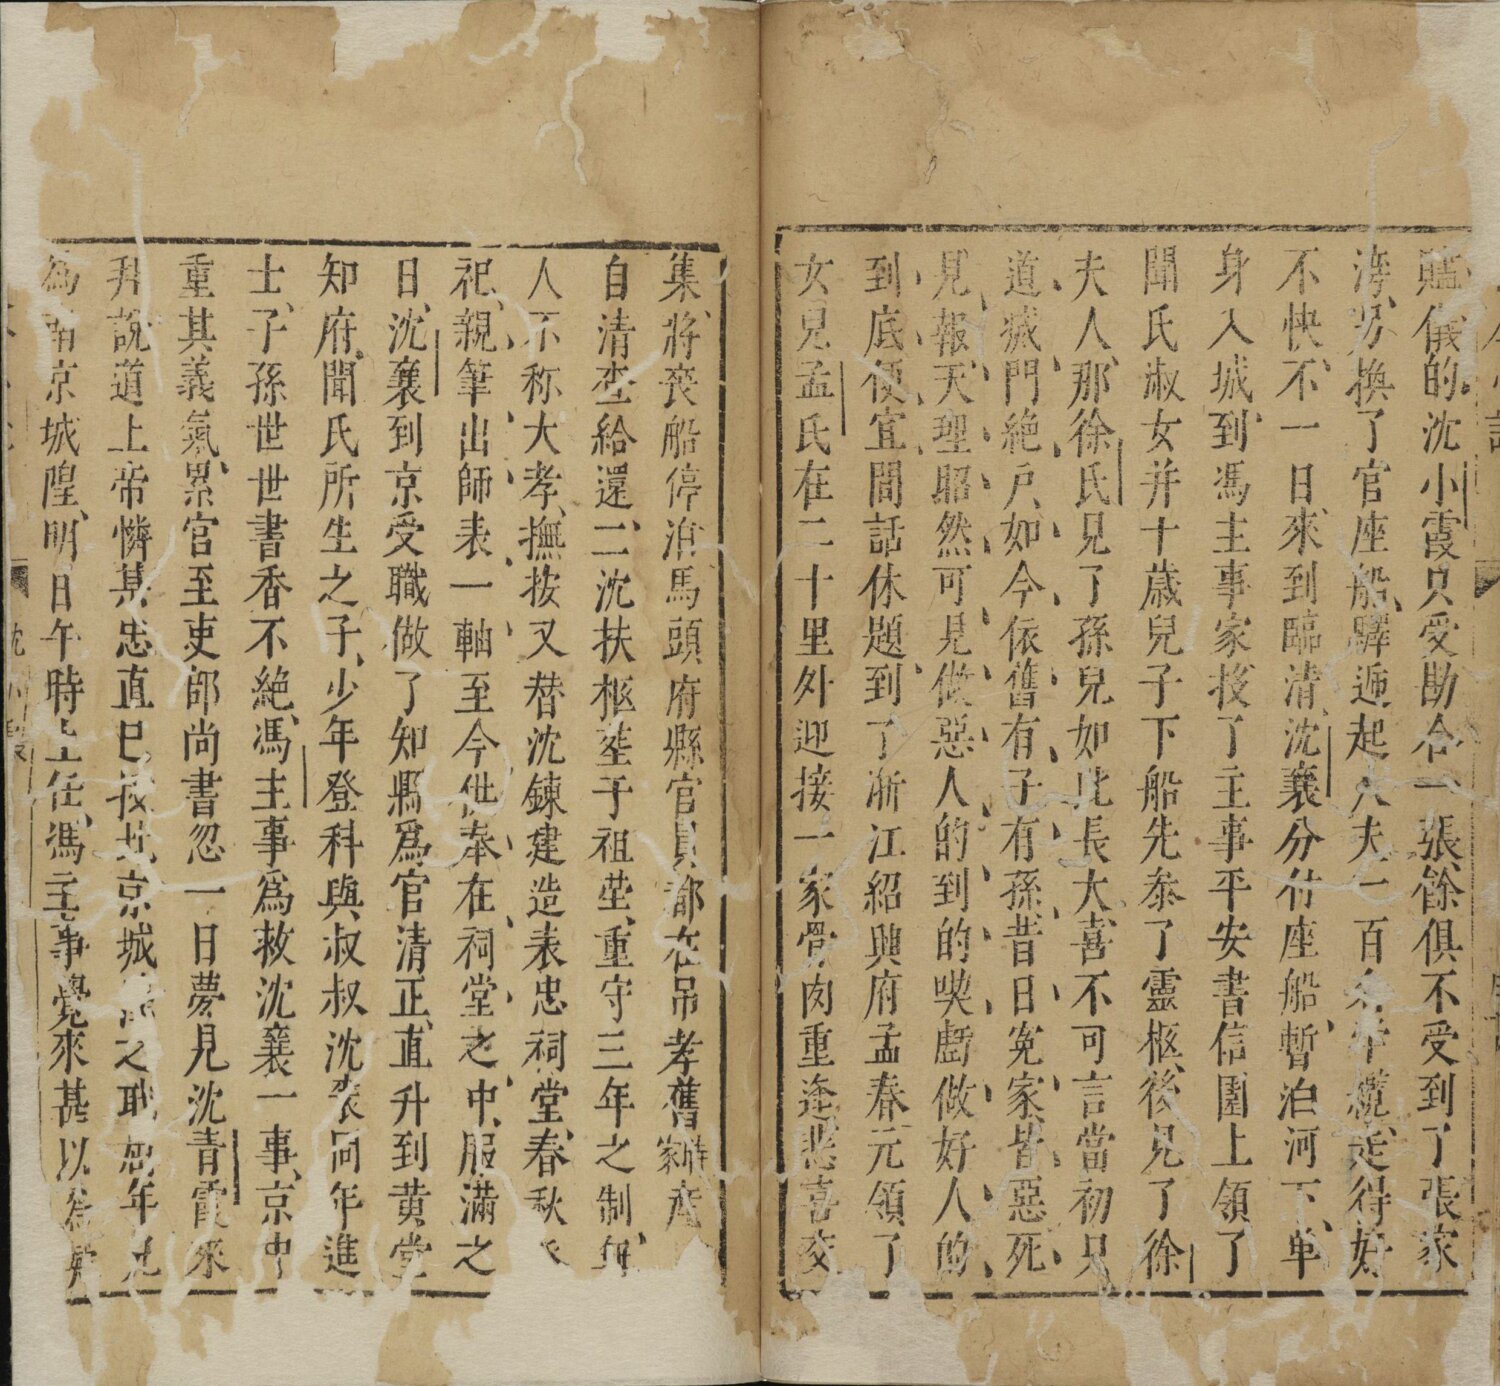 贐儀的沈小霞只受勘合一張餘俱不受到了張家
濟另換了官座船驛逓起人夫一百名牽纜走得好
不快不一日來到臨清沈襄分付座船暫泊河下单
身入城到馮主事家投了主事平安書信園上領了
聞氏淑女并十歲兒子下船先叅了靈柩後見了徐
夫人那徐氏見了孫兒如此長大喜不可言當初只
道滅門絶戶如今依舊有子有孫昔日冤家皆惡死
見報天理昭然可見做惡人的到的喫虧做好人的
到底便宜閒話休題到了浙江紹興府孟春元領了
女兒孟氏在二十里外迎接一家骨肉重逢悲喜交
集將喪船停泊馬頭府縣官員都在吊孝舊時家産
自清查給還二沈扶柩塟于祖塋重守三年之制無
人不称大孝撫按又替沈錬建造表忠祠堂春秋
祀親筆出師表一軸至今供奉在祠堂之中服滿之
日沈襄到京受職做了知縣爲官清正直升到黄堂
知府聞氏所生之子少年登科與叔叔沈袠同年進
士子孫世世書香不絶馮主事爲救沈襄一事京中
重其義氣累官至吏部尚書忽一日夢見沈青霞來
拜說道上帝憐某忠直已授北京城隍之職屈年兄
爲南京城隍明日午時上任馮主事覺來甚以爲疑
沈小霞